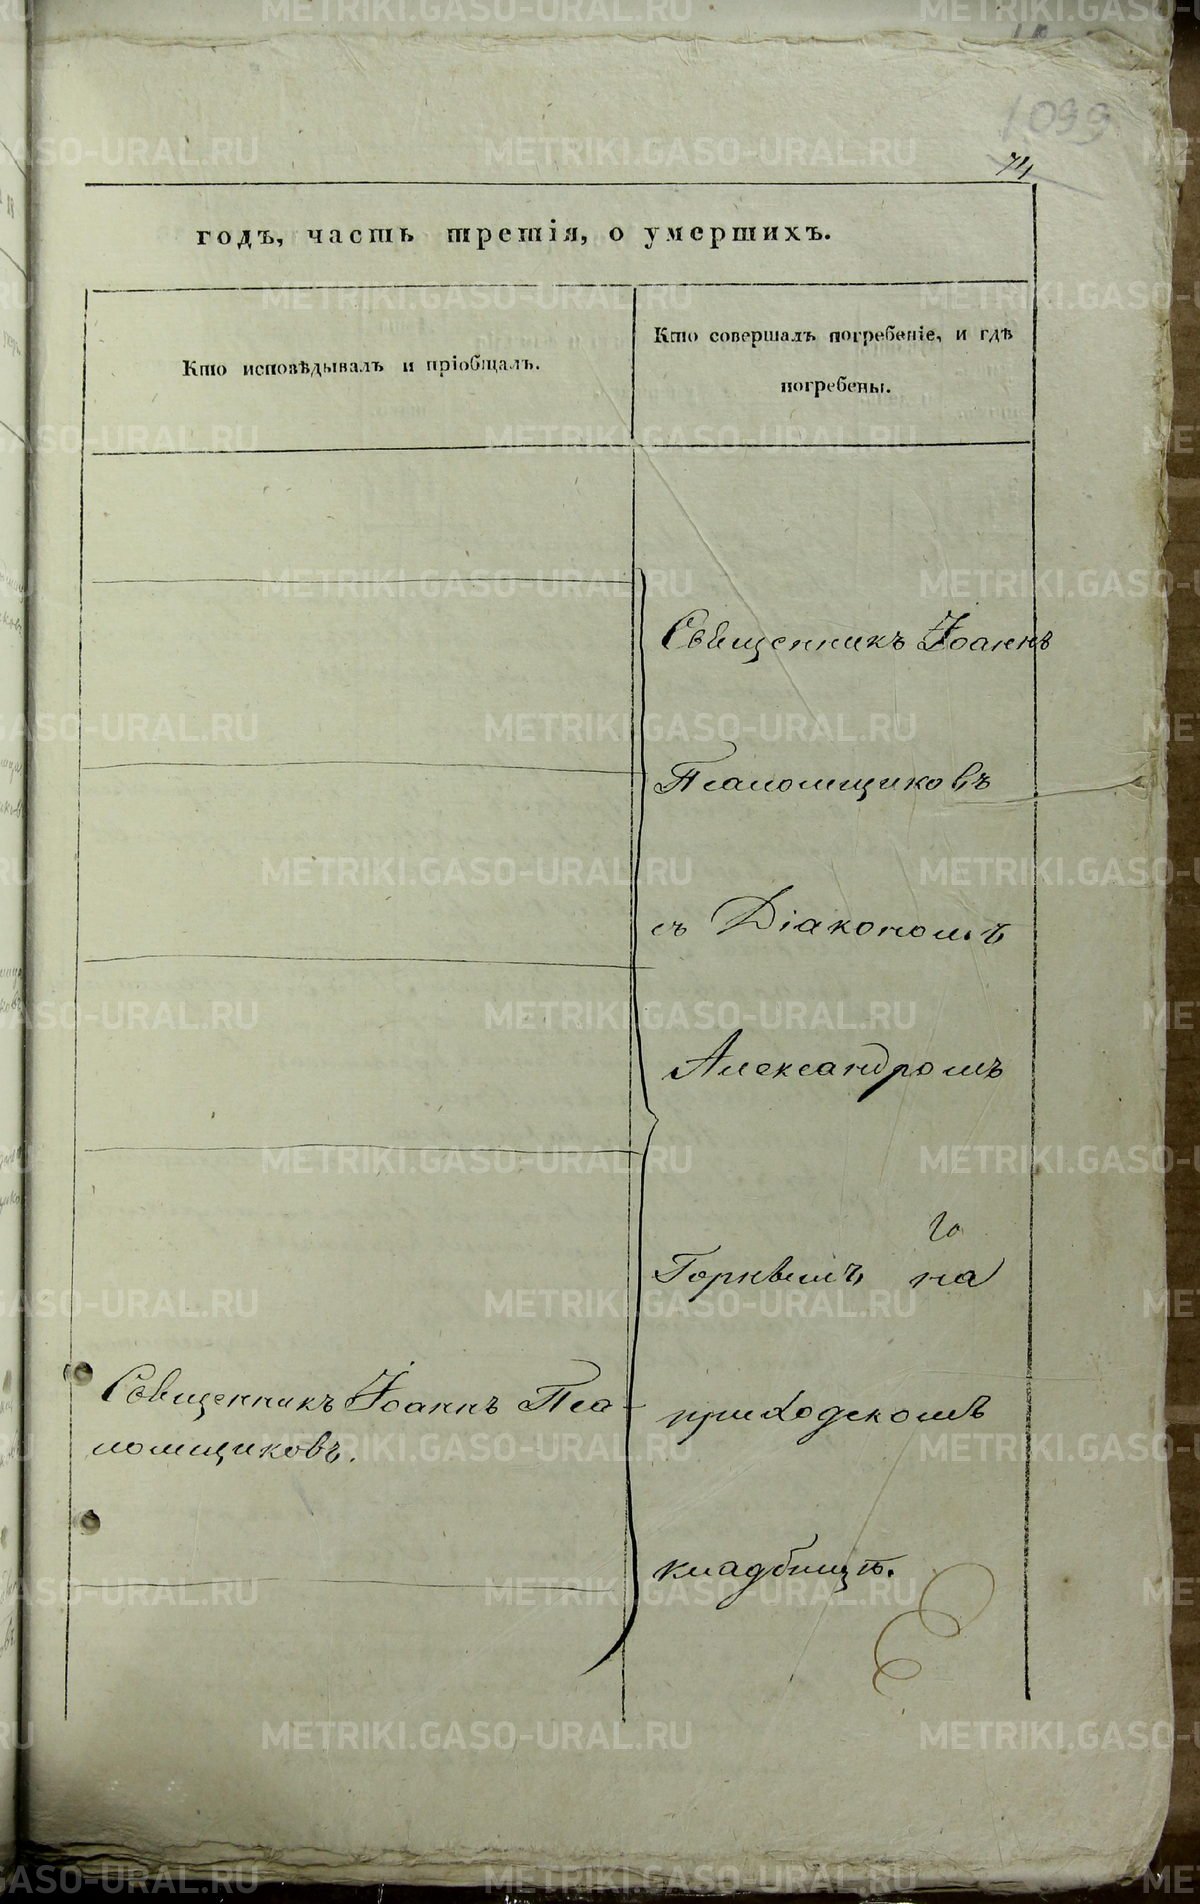 1099
74
годъ, часть третія, о умершихъ.
Кто исповѣдывалъ и пріобщалъ.
Кто совершалъ погребеніе, и гдѣ
погребены.
Священникъ Іоаннъ
Псаломщиковъ
съ Діакономъ
Александромъ
Горнвымъ на
го
приходскомъ
кладбищѣ.
Священникъ Іоаннъ Пса-
ломщиковъ.
METRIKI.GASO-URAL.RU